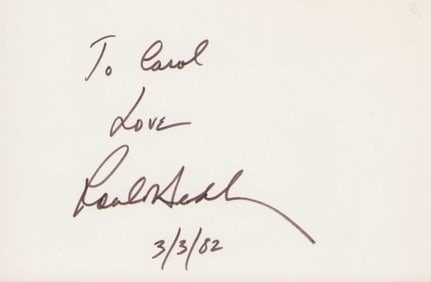 To Carol
Love
3/3/82